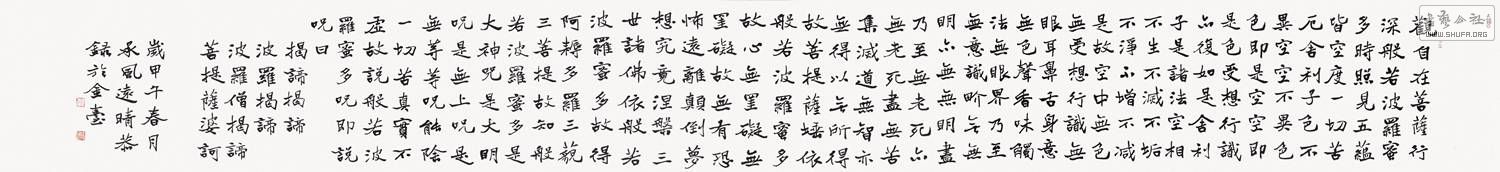 觀自在菩薩行
深般若波羅蜜
多時照見五蘊
皆空度一切苦
厄舍利子色不
異空空不異色
色即是空空即
是色受想行識
亦復如是舍利
子是諸法空相
不生不滅不垢
不淨不增不減
是故空中無色
無受想行識無
眼耳鼻舌身意
無色聲香味觸
法無眼界乃至
無意識界無無
明亦無無明盡
乃至無老死亦
無老死盡無苦
集滅道無智亦
無得以無所得
故菩提薩埵依
般若波羅蜜多
故心無罣礙無
罣礙故無有恐
怖遠離顛倒夢
想究竟涅槃三
世諸佛依般若
波羅蜜多故得
阿耨多羅三藐
三菩提故知般
若波羅蜜多是
大神咒是大明
咒是無上咒是
無等等咒能除
一切苦真實不
虛故說般若波
羅蜜多咒即說
咒曰
揭諦揭諦
波羅揭諦
波羅僧揭諦
菩提薩婆訶
歲甲午春月
承風遠晴恭
錄於金臺
藝公社
WWW.SHUFA.ORG